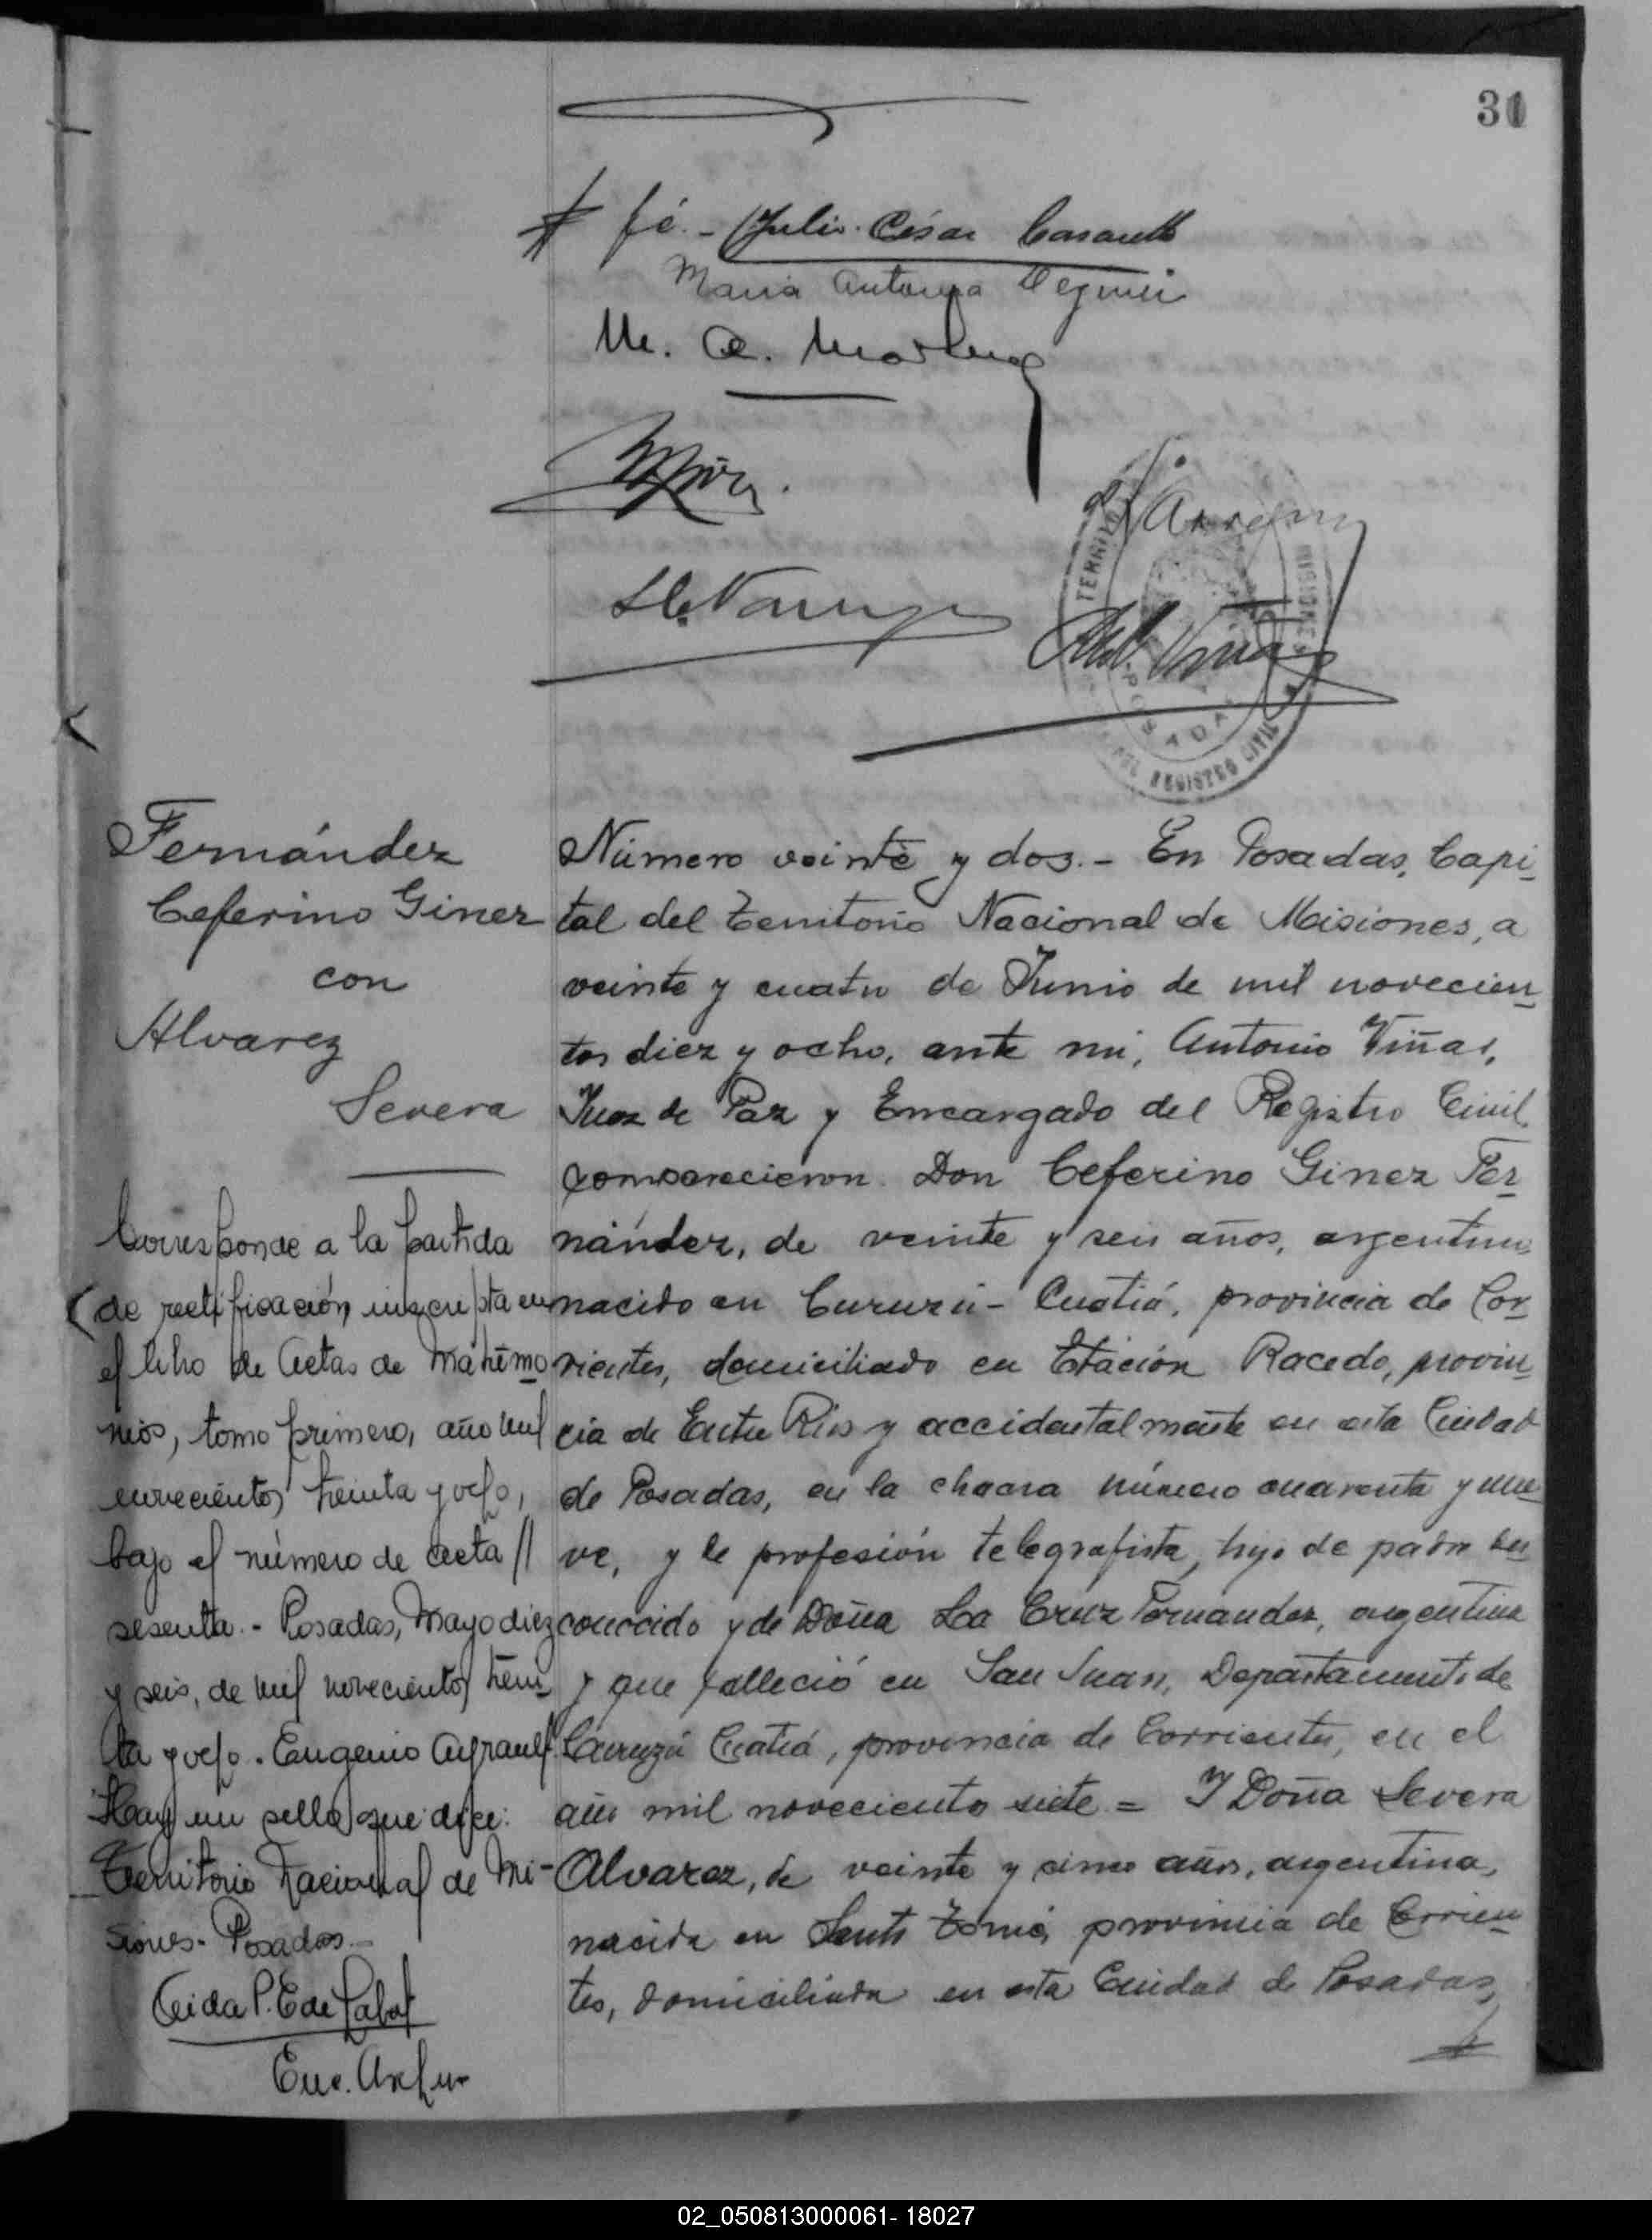 31
# fé.- Julio César
Maria Antonia
M. A.
TERRITORIO
MISIONES
POSADAS
DEL REGISTRO CIVIL
Fernández
Ceferino Ginez
con
Alvarez
Severa
Corresponde a la partida
de rectificación inscripta en
el libro de Actas de Matrimo
nios, tomo primero, año mil
novecientos treinta y ocho,
bajo el número de acta //
sesenta.- Posadas, Mayo diez
y seis, de mil novecientos trein
ta y ocho. Eugenio
Hay un sello que dice:
Territorio Nacional de Mi-
siones- Posadas.-
Aida P. E de Labat
Enc.
Número veinte y dos.- En Posadas, Capi
tal del Territorio Nacional de Misiones, a
veinte y cuatro de Junio de mil novecien
tos diez y ocho, ante mi, Antonio Viñas,
Juez de Paz y Encargado del Registro Civil,
comparecieron Don Ceferino Ginez Fer
nández, de veinte y seis años, argentino
nacido en Curuzú-Cuatiá, provincia de Cor
rientes, domiciliado en Estación Racedo, provin
cia de Entre Rios y accidentalmente en esta Ciudad
de Posadas, en la chacra número cuarenta y nue
ve, y de profesión telegrafista, hijo de padre des
conocido y de Doña La Cruz Fernandez, argentina
y que falleció en San Juan, Departamento de
Curuzú Cuatiá, provincia de Corrientes, en el
año mil noveciento siete = Y Doña Severa
Alvarez, de veinte y cinco años, argentina,
nacida en Santo Tomé, provincia de Corrien
tes, domiciliada en esta Ciudad de Posadas,
02_050813000061- 18027